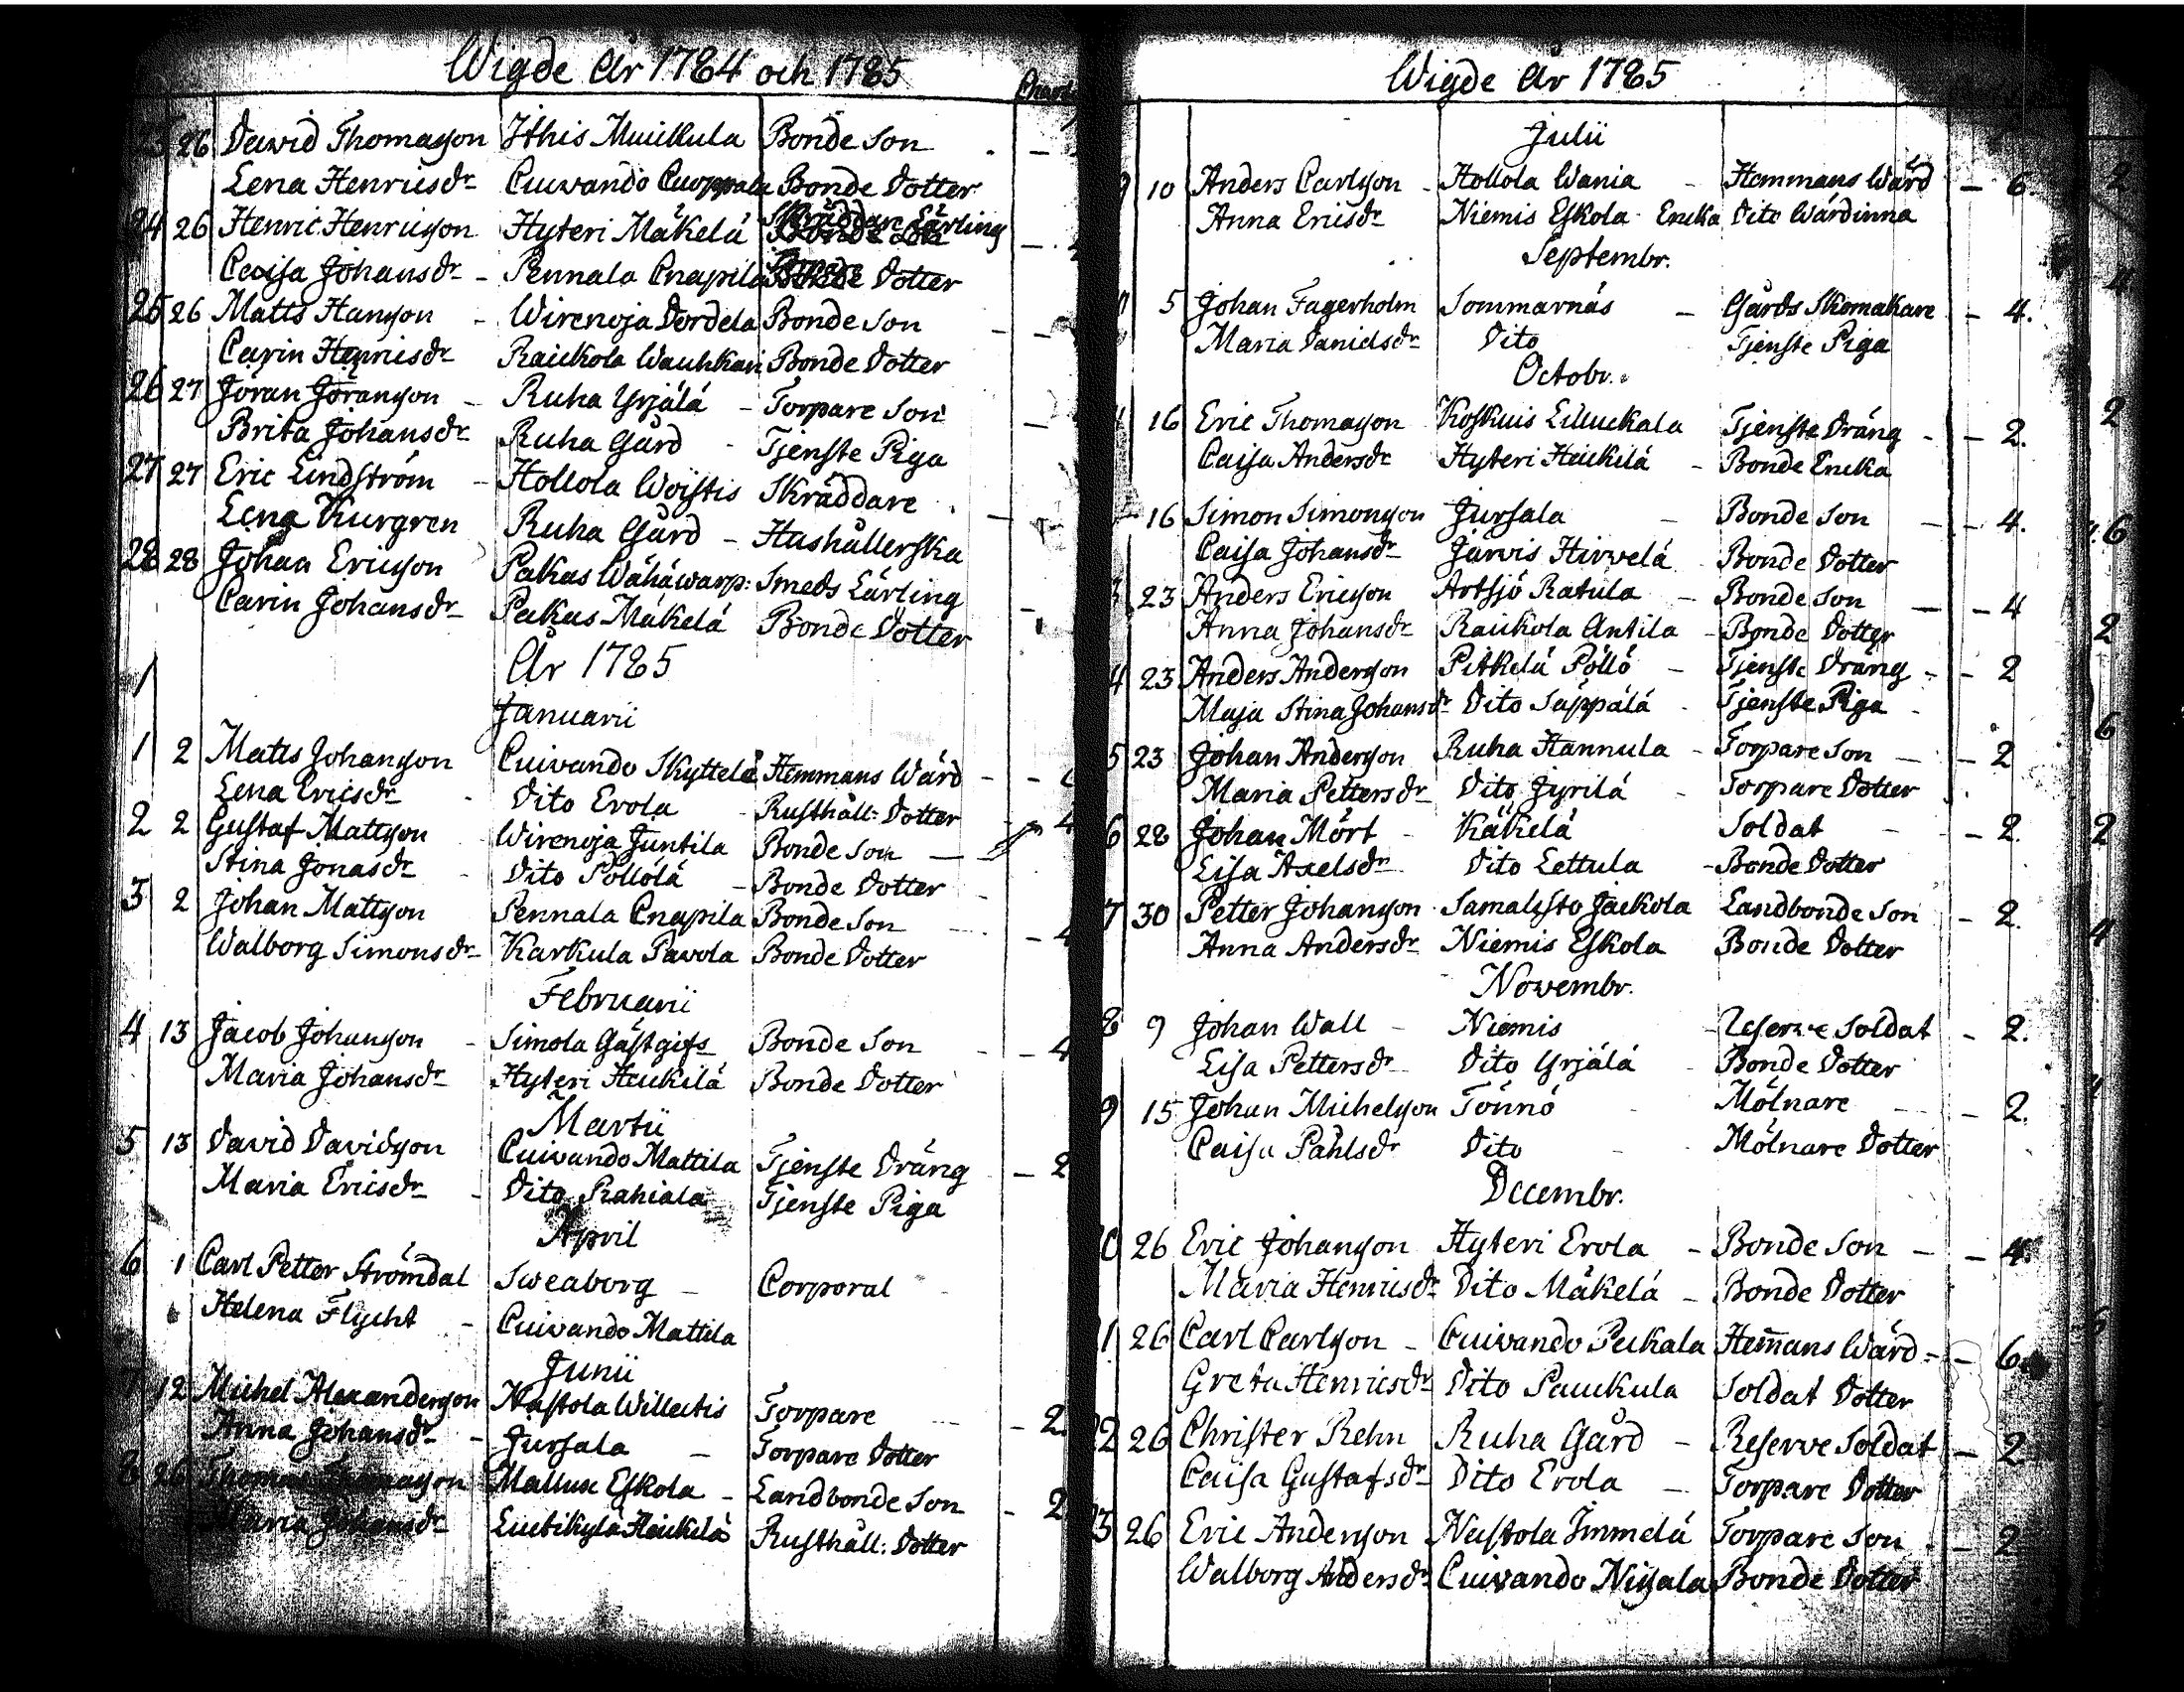 Wigde År 1784 och 1785
26 David Thomasson Ithis Muikkula Bonde Son
Lena Henricsdr Cuivando Cuoppala Bonde Dotter
24 26 Henric Henricsson Hyteri Mäkelä Skräddare Lärling
Caisa Johansdr Pennala Cnapila Dotter
25 26 Matts Hansson Wirenoja Dordela Bonde Son
Carin Henricsdr Raickola Wauhkari Bonde Dotter
26 27 Jöran Jöransson Ruha Yrjälä Torpare Son
Brita Johansdr Ruha Gård Tjenste Piga
27 27 Eric Lindström Hollola Woistis Skräddare
Lena Kurgren Ruha Gård Hushållerska
28 28 Johan Ericsson Pakas Wähäwarp: Smeds Lärling
Carin Johansdr Pakas Mäkelä Bonde Dotter
År 1785
Januarii
1 2 Matts Johansson Cuivando Skyttelä Hemmans Wärd
Lena Ericsdr Dito Erola Rusthåll: Dotter
2 2 Gustaf Mattsson Wirenoja Juntila Bonde Son 4
Stina Jonasdr Dito Pöllölä Bonde Dotter
3 2 Johan Mattsson Pennala Cnapila Bonde Son
Walborg Simonsdr Karkula Pavola Bonde Dotter 4
Februarii
4 13 Jacob Johansson Simola Gästgifs Bonde Son 4
Maria Johansdr Hyteri Heickilä Bonde Dotter
Martii
5 13 David Davidsson Cuivando Mattila Tjenste Dräng 2
Maria Ericsdr Dito Rahiala Tjenste Piga
April
6 1 Carl Petter Strömdal Sweaborg Corporal
Helena Flycht Cuivando Mattila
Junii
7 12 Michel Alexandersson Nastola Willectis Torpare 2
Anna Johansdr Jursala Torpare Dotter
8 26 Thomas Thomasson Mallux Eskola Landbonde Son 2
Maria Johansdr Leutikylä Heickilä Rusthåll: Dotter
Wigde År 1785
Julii
9 10 Anders Carlsson Hollola Wania Hemmans Wärd 6
Anna Ericsdr Niemis Eskola Encka Dito Wärdinna
Septembr.
5 Johan Fagerholm Sommarnäs Gårds Skomakare 4.
Maria Danielsdr Dito Tjenste Piga
Octobr.
16 Eric Thomasson Koskuis Lilluckala Tjenste Dräng 2.
Caisa Andersdr Hyteri Heickilä Bonde Encka
16 Simon Simonsson Jursala Bonde Son 4.
Caisa Johansdr Järvis Hirvelä Bonde Dotter
23 Anders Ericsson Artsjö Ratula Bonde Son 4
Anna Johansdr Raickola Antila Bonde Dotter
4 23 Anders Andersson Pitkelä Pöllö Tjenste Dräng 2
Maja Stina Johansdr Dito Säppälä Tjenste Piga
5 23 Johan Andersson Ruha Hannula Torpare Son 2
Maria Pettersdr Dito Jyrilä Torpare Dotter
6 28 Johan Mört Käkelä Soldat 2.
Lisa Axelsdr Dito Lettula Bonde Dotter
7 30 Petter Johansson Samalisto Jäckola Landbonde Son 2.
Anna Andersdr Niemis Eskola Bonde Dotter
Novembr.
8 9 Johan Wall Niemis Reserve Soldat 2.
Lisa Pettersdr Dito Yrjälä Bonde Dotter
9 15 Johan Michelsson Tönnö Mölnare 2.
Caisa Påhlsdr Dito Mölnare Dotter
Decembr.
0 26 Eric Johansson Hyteri Erola Bonde Son 4.
Maria Henricsdr Dito Mäkelä Bonde Dotter
1 26 Carl Carlsson Cuivando Peckala Hem̅ans Wärd 6
Greta Henricsdr Dito Pauckula Soldat Dotter
22 26 Christer Rehn Ruha Gård Reserve Soldat 2
Caisa Gustafsdr Dito Erola Torpare Dotter
3 26 Eric Andersson Nastola Immelä Torpare Son 2
Walborg Andersdr Cuivando Nisala Bonde Dotter